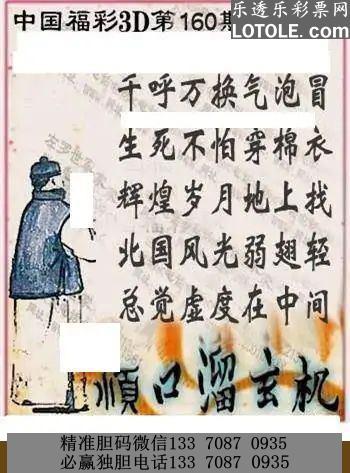 中国福彩3D第160期
乐透乐彩票网
LOTOLE.COM
千呼万换气泡冒
生死不怕穿棉衣
辉煌岁月地上找
北国风光弱翅轻
总觉虚度在中间
顺口溜玄机
精准胆码微信133 7087 0935
必赢独胆电话133 7087 0935